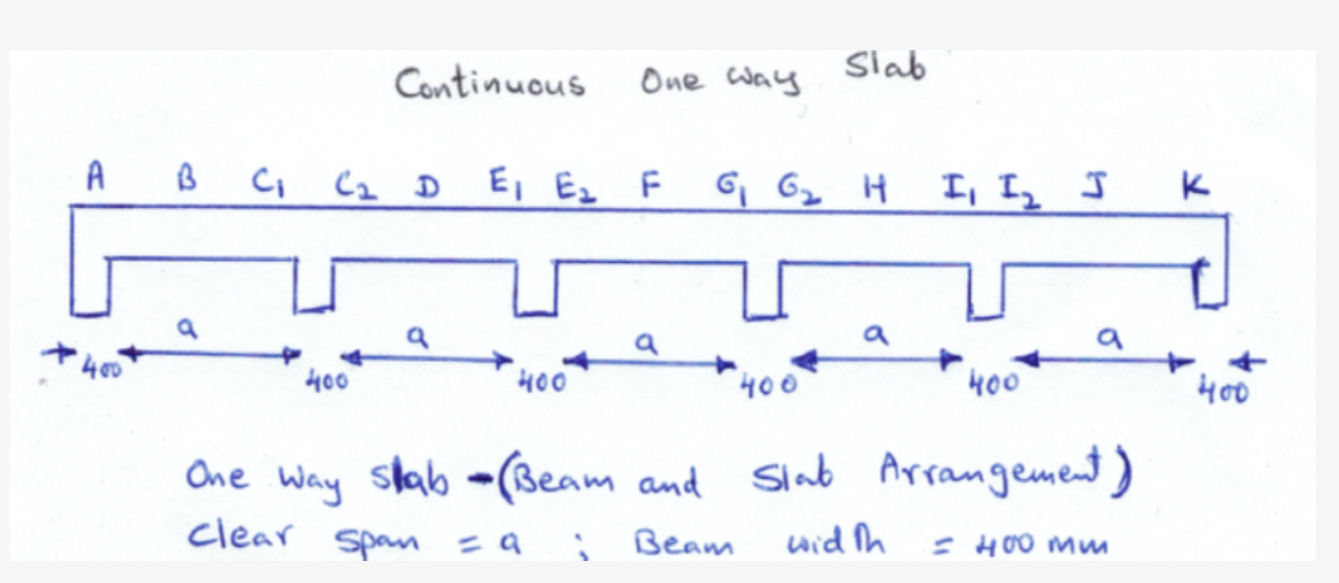 Continuous One way Slab
A B C₁ C₂ D E₁ E₂ F G₁ G₂ H I₁ I₂ J K
a a a a a
400 400 400 400 400 400
One way slab - (Beam and Slab Arrangement)
Clear span = a ; Beam width = 400 mm